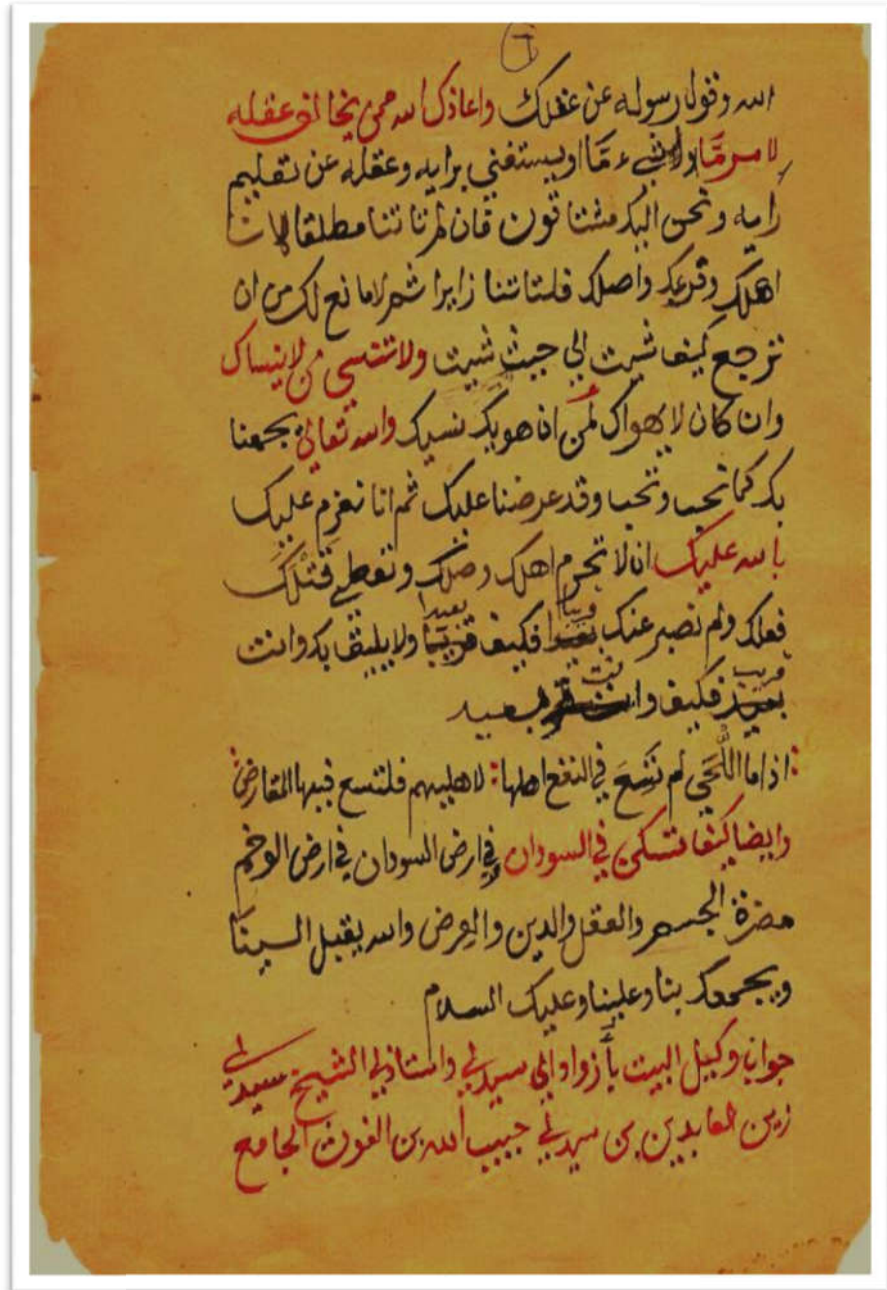 ٦
الله وقول رسوله عن عقلك واعاذك الله ممن يخالف عقله
لامر مّا ولا شيء مّا او يستغني برايه وعقله عن تقليم
رايه ونحن اليك مشتاقون فان لم تاتنا مطلقا لان
اهلك وفرعك واصلك فلتاتنا زايرا ثم لا مانع لك من ان
ترجع كيف شيت الي حيث شيت ولا تنسى من لا ينساك
وان كان لا يهواك لمن انا هويك نسيك والله تعالى يجمعنا
بك كما نحب وتحب وقد عرضنا عليك ثم انا نعزم عليك
بالله عليك ان لا تحرم اهلك وصلك وتعطي
فعلك ولم نصبر عنك قريبا فكيف بعيدا ولا يليق بك وانت
قريب فكيف وانت بعيد
اذا ما اللحَى لم تَسْعَ في النفع اهلها لاهليهم فلتسع فيها المقارض
وايضا كيف تسكن في السودان في ارض السودان في ارض الوخم
مضرة الجسم والعقل والدين والعرض والله يقبل الينا
ويجمعك بنا وعلينا وعليك السلام
جواب وكيل البيت بأزواد الي سيدي واستاذي الشيخ سيدي
زين العابدين بن سيدي حبيب الله بن الغوث الجامع